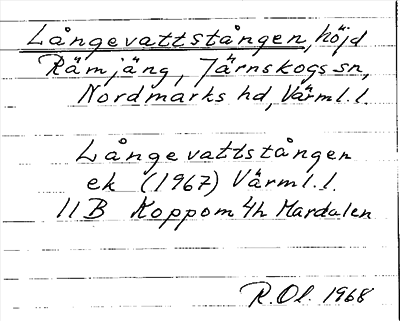 Långevattstången, höjd
Rämjäng, Järnskogs sn,
Nordmarks hd, Värml. l.
Långevattstången
ek (1967) Värml. l.
11B Koppom 4h Mardalen
R. Ol. 1968